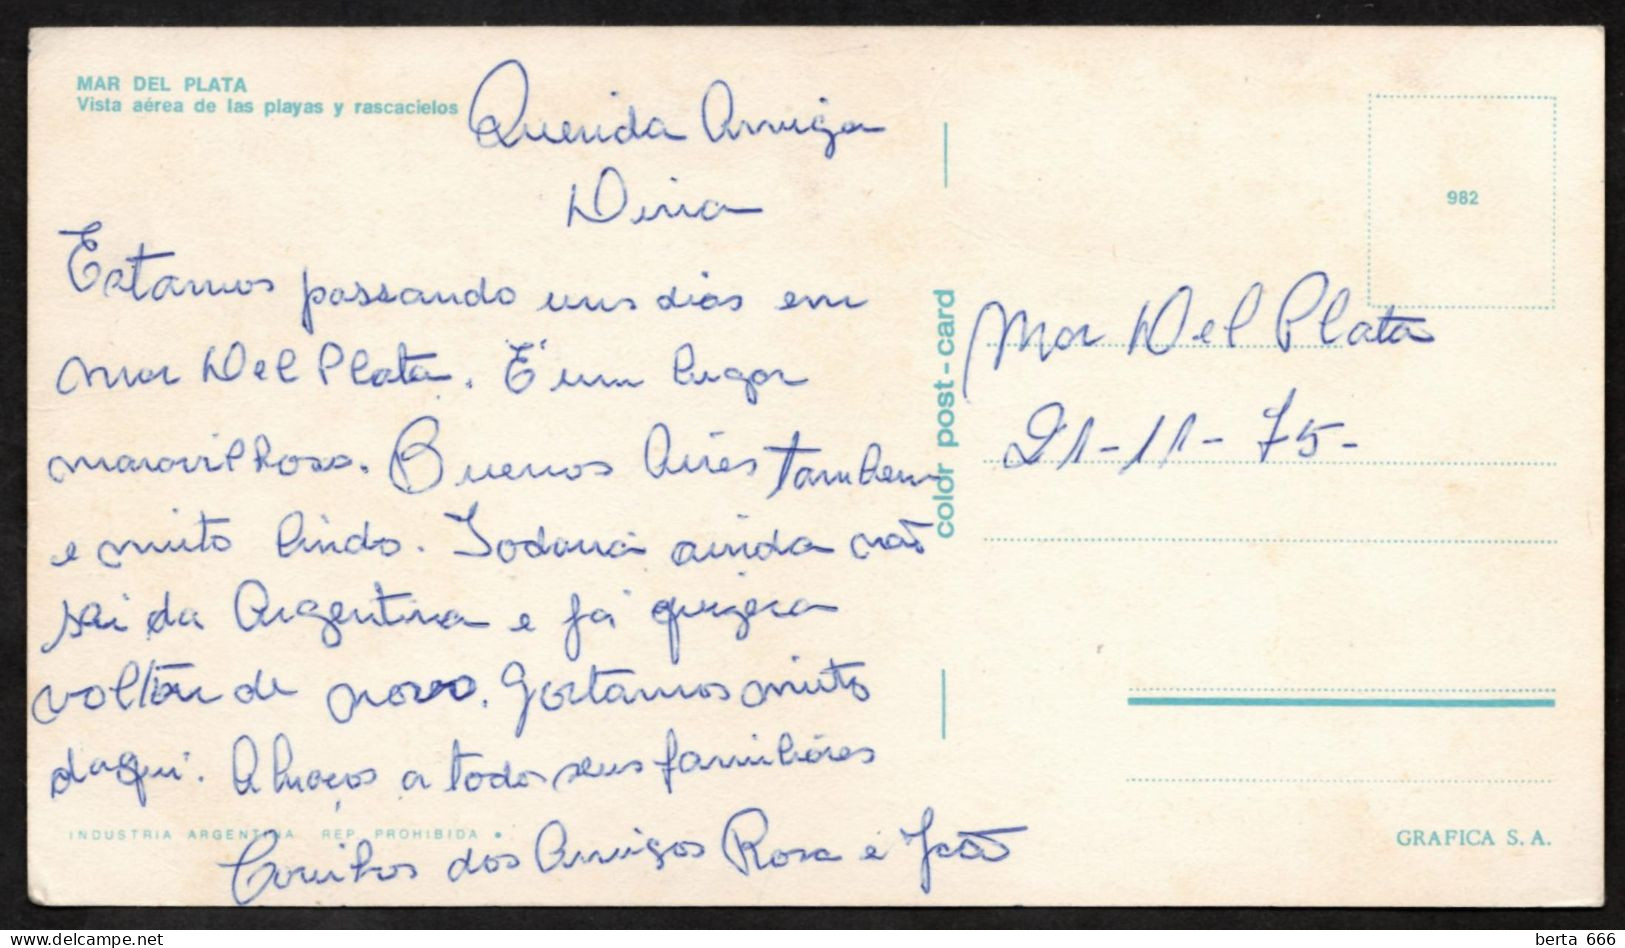 MAR DEL PLATA
Vista aérea de las playas y rascacielos
Querida Amiga
Dina
Estamos passando uns dias em
Mar Del Plata. É um lugar
maravilhoso. Buenos Aires tambem
e muito lindo. Todavia ainda não
sai da Argentina e já quizera
voltar de novo. Gostamos muito
daqui. Abraços a todos seus familiares
INDUSTRIA ARGENTINA REP. PROHIBIDA •
dos Amigos Rosa e João
color post-card
982
Mar Del Plata
21-11-75-
GRAFICA S. A.
berta 666